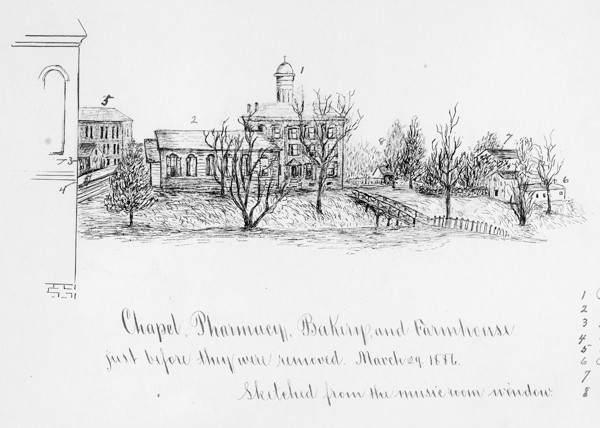 1
5
2
8
7
3
6
4
Chapel, Pharmacy, Bakery and Farmhouse
just before they were removed. March 29, 1886.
Sketched from the music room window.
1
2
3
4
5
6
7
8